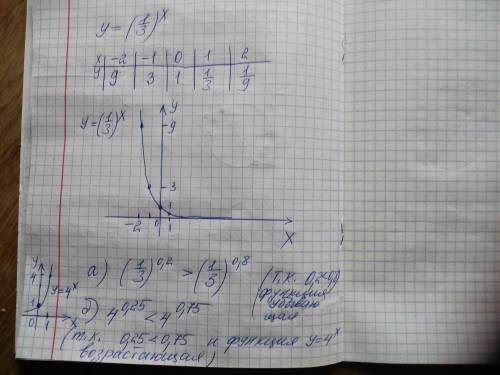 y = (1/3)^x
x | -2 | -1 | 0 | 1 | 2
y | 9 | 3 | 1 | 1/3 | 1/9
y
y = (1/3)^x
9
3
1
-2 0 1
x
а) (1/3)^0,2 > (1/3)^0,8 (т.к. 0,2<0,8
функция
убываю
щая
y
4
y=4^x
1
0 1 x
б) 4^0,25 < 4^0,75
(т.к. 0,25 < 0,75 и функция y=4^x
возрастающая)